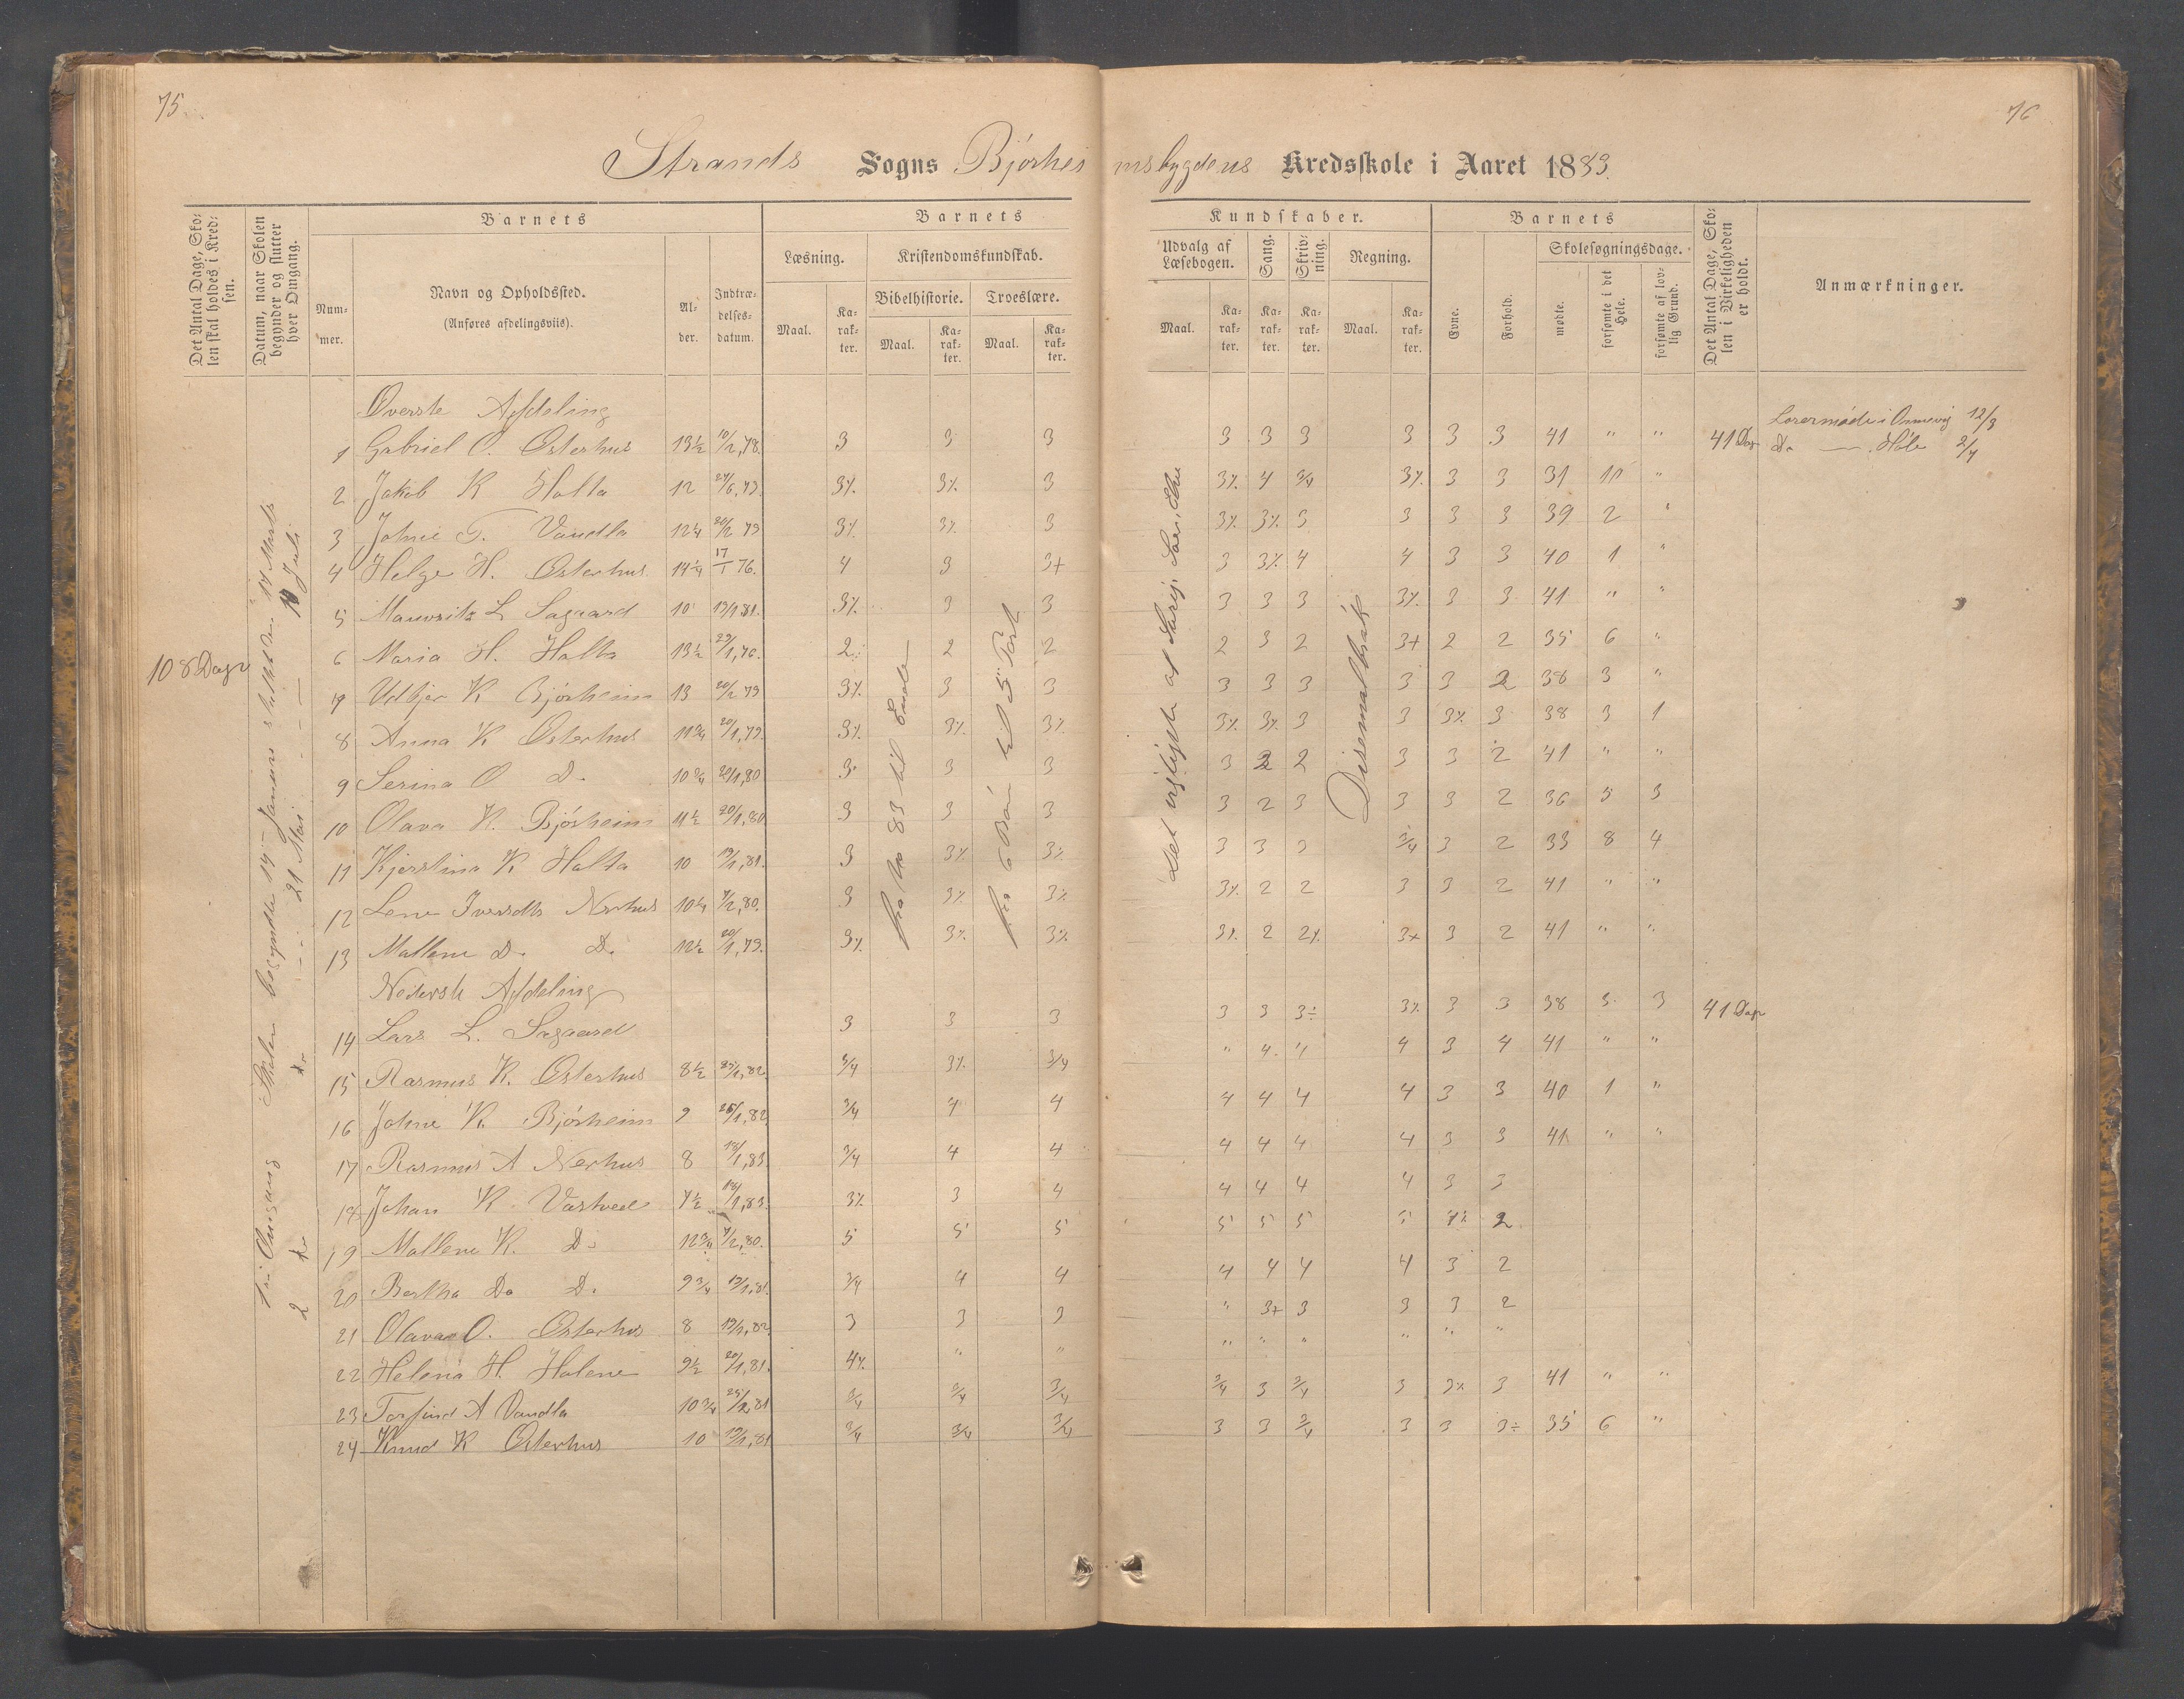 75.
76
Strands Sogns Bjørheimsbygdens Kredsskole i Aaret 1883.
Det Antal Dage, Skolen skal holdes i Kredsen.
Datum, naar Skolen begynder og slutter hver Omgang.
Barnets
Nummer.
Navn og Opholdssted.
(Anføres afdelingsviis).
Alder.
Indtrædelses-datum.
Barnets
Læsning.
Kristendomskundskab.
Bibelhistorie.
Troeslære.
Maal.
Karakter.
Maal.
Karakter.
Maal.
Karakter.
Kundskaber.
Udvalg af Læsebogen.
Sang.
Skrivning.
Regning.
Maal.
Karakter.
Karakter.
Karakter.
Maal.
Karakter.
Barnets
Evne.
Forhold.
Skolesøgningsdage.
mødte.
forsømte i det Hele.
forsømte af lovlig Grund.
Det Antal Dage, Skolen i Virkeligheden er holdt.
Anmærkninger.
108 Dage
fra No 83 til Ende
til 5 Part
Desemalbrøk
Øverste Afdeling
1 Gabriel O. Østerhus 13½ 10/2,78. 3 3 3 3 3 3 3 3 3 41 " " 41 Dage
Lærermøde i 12/3
Do — Høle 2/7
2 Jakob K Holta 12 3% 3% 3 3% 4 3/4 3% 3 3 31 10 "
3 Johne T. Vandla 12¼ 20/2 79 3% 3% 3 3% 3% 3 3 3 3 39 2 "
4 Helge H. Østerhus 14¼ 17/1 76. 4 3 3+ 3 3% 4 4 3 3 40 1 "
5 Mauritz L Sagaard 10 19/1 81. 3% 3 3 3 3 3 3% 3 3 41 " "
6 Maria H. Holta 13½ 2 2 2 2 3 2 3+ 2 2 35 6 "
7 K Bjørheim 13 20/2 79 3% 3 3 3 3 3 3 3 2 38 3 "
8 Anna K Østerhus 11¾ 20/1,79. 3% 3% 3% 3% 3% 3 3 3% 3 38 3 1
9 Serina O D. 10¾ 20/1,80 3 3 3 3 2 2 3 3 2 41 " "
10 Olava K. Bjørheim 11½ 20/1,80 3 3 3 3 2 3 3 3 2 36 5 3
11 Kjerstina K Holta 10 19/1,81. 3 3% 3% 3 3 3 3/4 3 2 33 8 4
12 Lene Iversdtr Nerhus 10¼ 7/2,80. 3 3% 3% 3% 2 2 3 3 2 41 " "
13 Mallene D. D. 12½ 20/1,79. 3% 3% 3% 3% 2 2% 3+ 3 2 41 " "
Nederste Afdeling
14 Lars L. Sagaard 3 3 3 3 3 3÷ 3% 3 3 38 3 3 41 Dage
15 Rasmus K. Østerhus 8½ 3/4 3% 3/4 " 4 4 4 3 4 41 " "
16 Johne K. Bjørheim 9 3/4 4 4 4 4 4 4 3 3 40 1 "
17 Rasmus A Nerhus 8 3/4 4 4 4 4 4 4 3 3 41 " "
18 Johan K. 7½ 3% 3 4 4 4 4 4 3 3
19 Mallene K. D. 12¾ 7/2,80. 5 5 5 5 5 5 5 2
20 Bertha Do D. 9¾ 19/1,81. 3/4 4 4 4 4 4 4 3 2
21 Olava O. Østerhus 8 3 3 3 " 3+ 3 3 3 2
22 Helena H. Holene 9½ 20/1,81. 4% " " " " " " " "
23 Torfind A Vandla 10¾ 3/4 3/4 3/4 3/4 3 3/4 3 3% 3 41 " "
24 Knud K Østerhus 10 19/1,81 3/4 3/4 3/4 3 3 3/4 3 3 3÷ 35 6 "